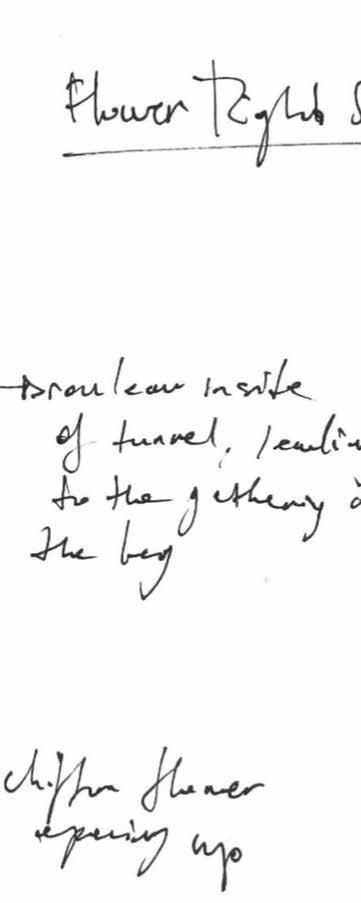 Flower Rights S
inside
of tunnel, leadin
to the gathering o
the bag
chiffon flower
opening up